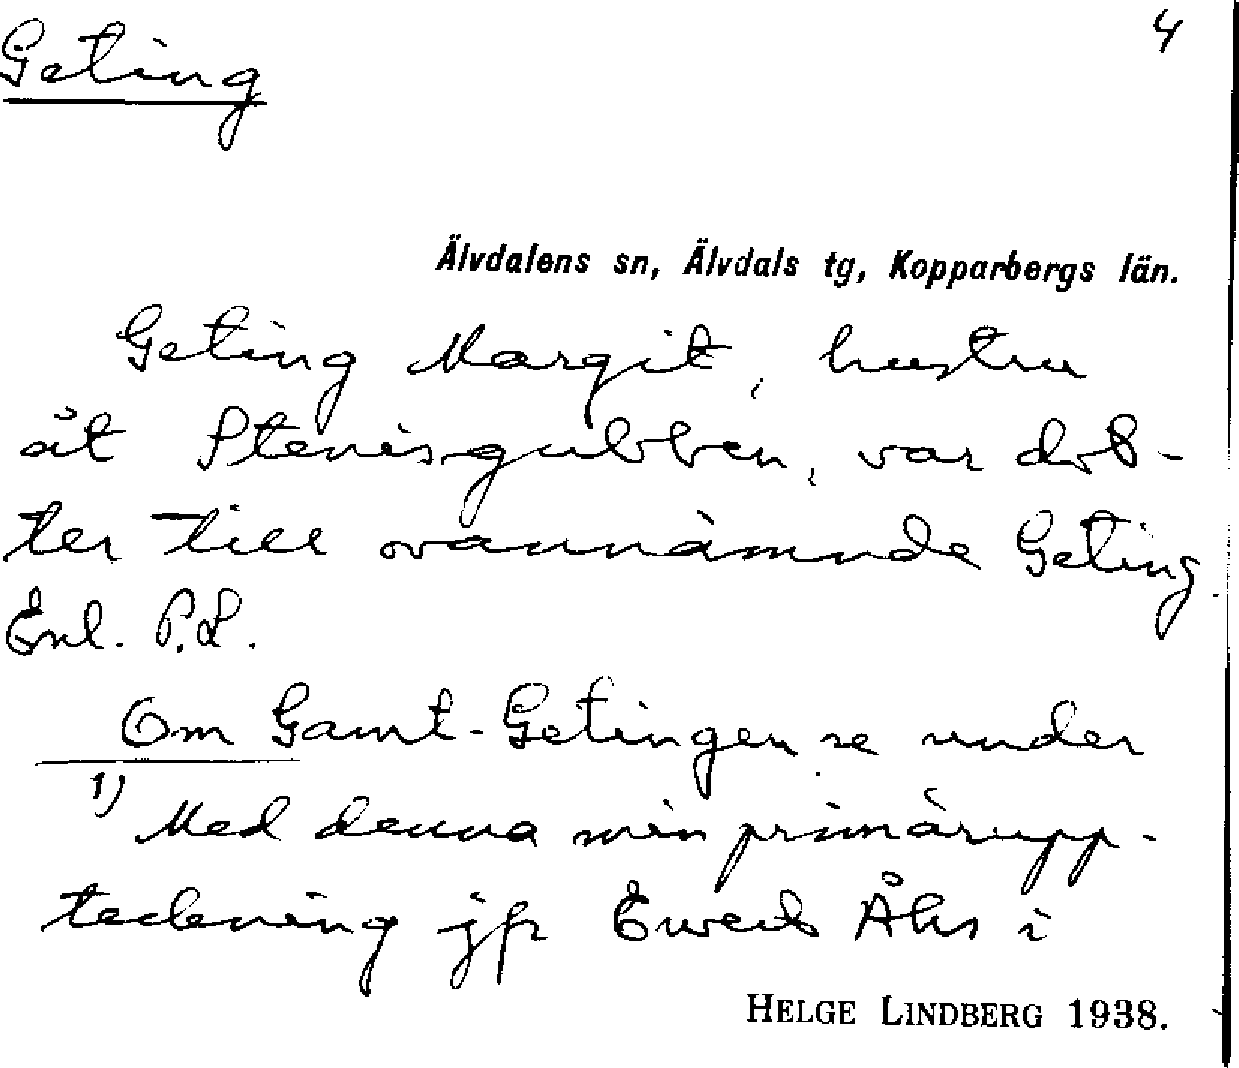 Geting
4
Älvdalens sn, Älvdals tg, Kopparbergs län.
Geting Margit, hustru
åt Stenisgubben, var dot-
ter till ovannämnde Geting.
Enl. P.L.
Om Gamt-Getingen se under
1) Med denna min primärupp-
teckning jfr Ewert Åhs i
HELGE LINDBERG 1938.